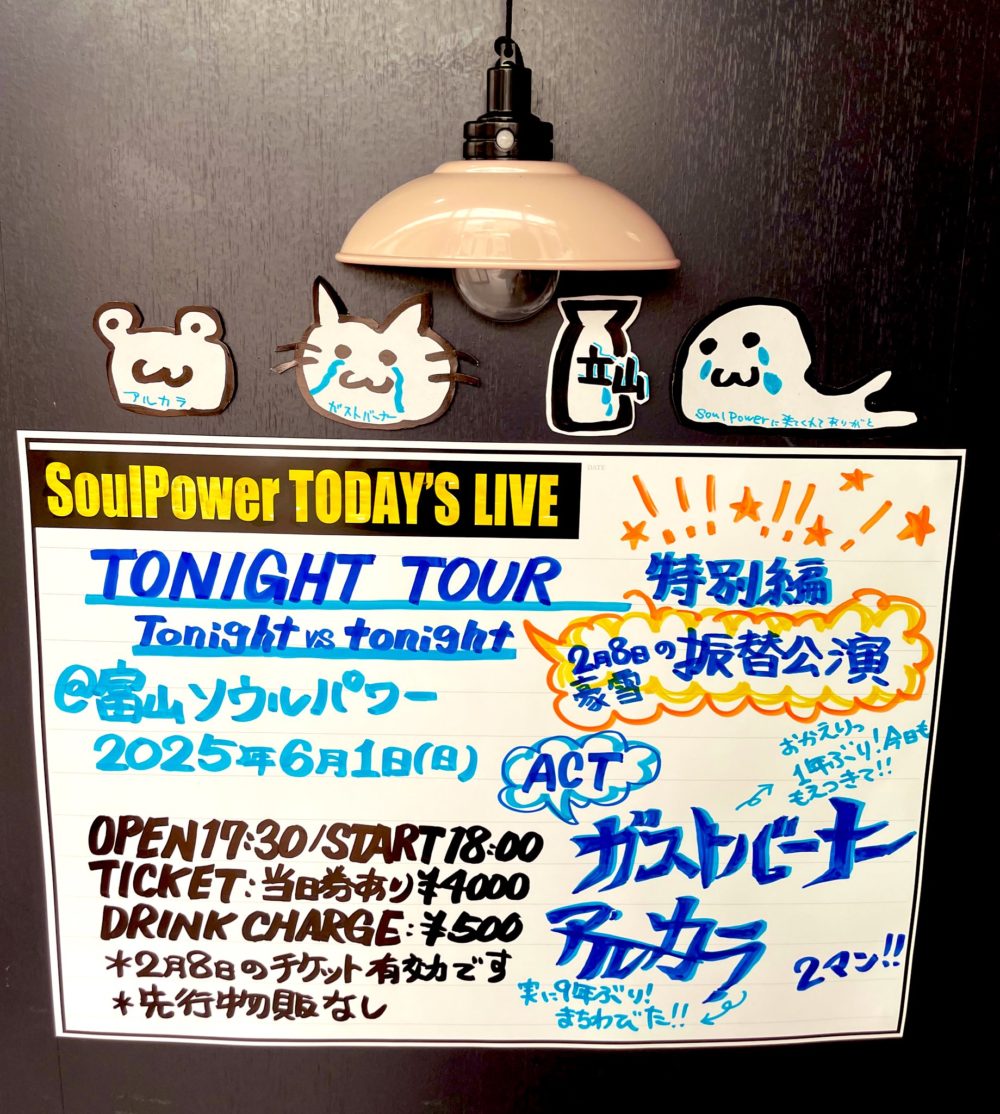 アルカラ
ガストバーナー
立山
SoulPowerに来てくれてありがと
SoulPower TODAY'S LIVE
DATE
TONIGHT TOUR 特別編
Tonight vs tonight
2月8日豪雪の振替公演
@富山ソウルパワー
2025年6月1日(日)
ACT
おかえりっ
1年ぶり!今日も
もえつきて!!
ガストバーナー
アルカラ
2マン!!
実に9年ぶり!
まちわびた!!
OPEN17:30/START18:00
TICKET:当日券あり¥4000
DRINK CHARGE:¥500
*2月8日のチケット有効です
*先行中の販なし